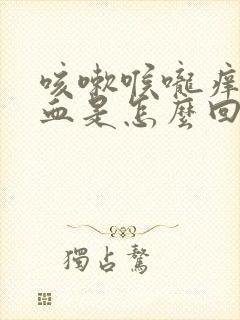 咳嗽喉嚨癢
血是怎麼回
獨占鰲